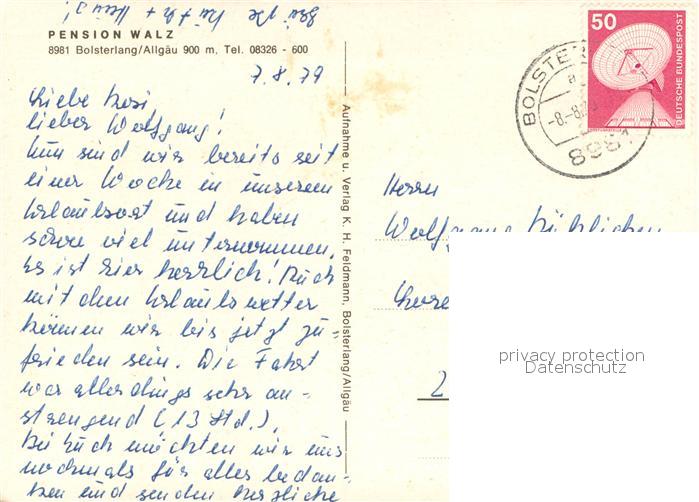 PENSION WALZ
8981 Bolsterlang/Allgäu 900 m, Tel. 08326 - 600
7.8.79
Liebe Rosi
lieber Wolfgang!
Nun sind wir bereits seit
einer Woche in unserem
Urlaubsort und haben
schon viel unternommen.
Es ist hier herrlich! Auch
mit dem Urlaubswetter
können wir bis jetzt zu-
frieden sein. Die Fahrt
war allerdings sehr an-
strengend (13 Std.).
Bei Euch möchten wir uns
nochmals für alles bedan-
ken und senden herzliche
Aufnahme u. Verlag K. H. Feldmann, Bolsterlang/Allgäu
50
DEUTSCHE BUNDESPOST
BOLSTE
-8-8.
8981
Herrn
Wolfgang
2
privacy protection
Datenschutz